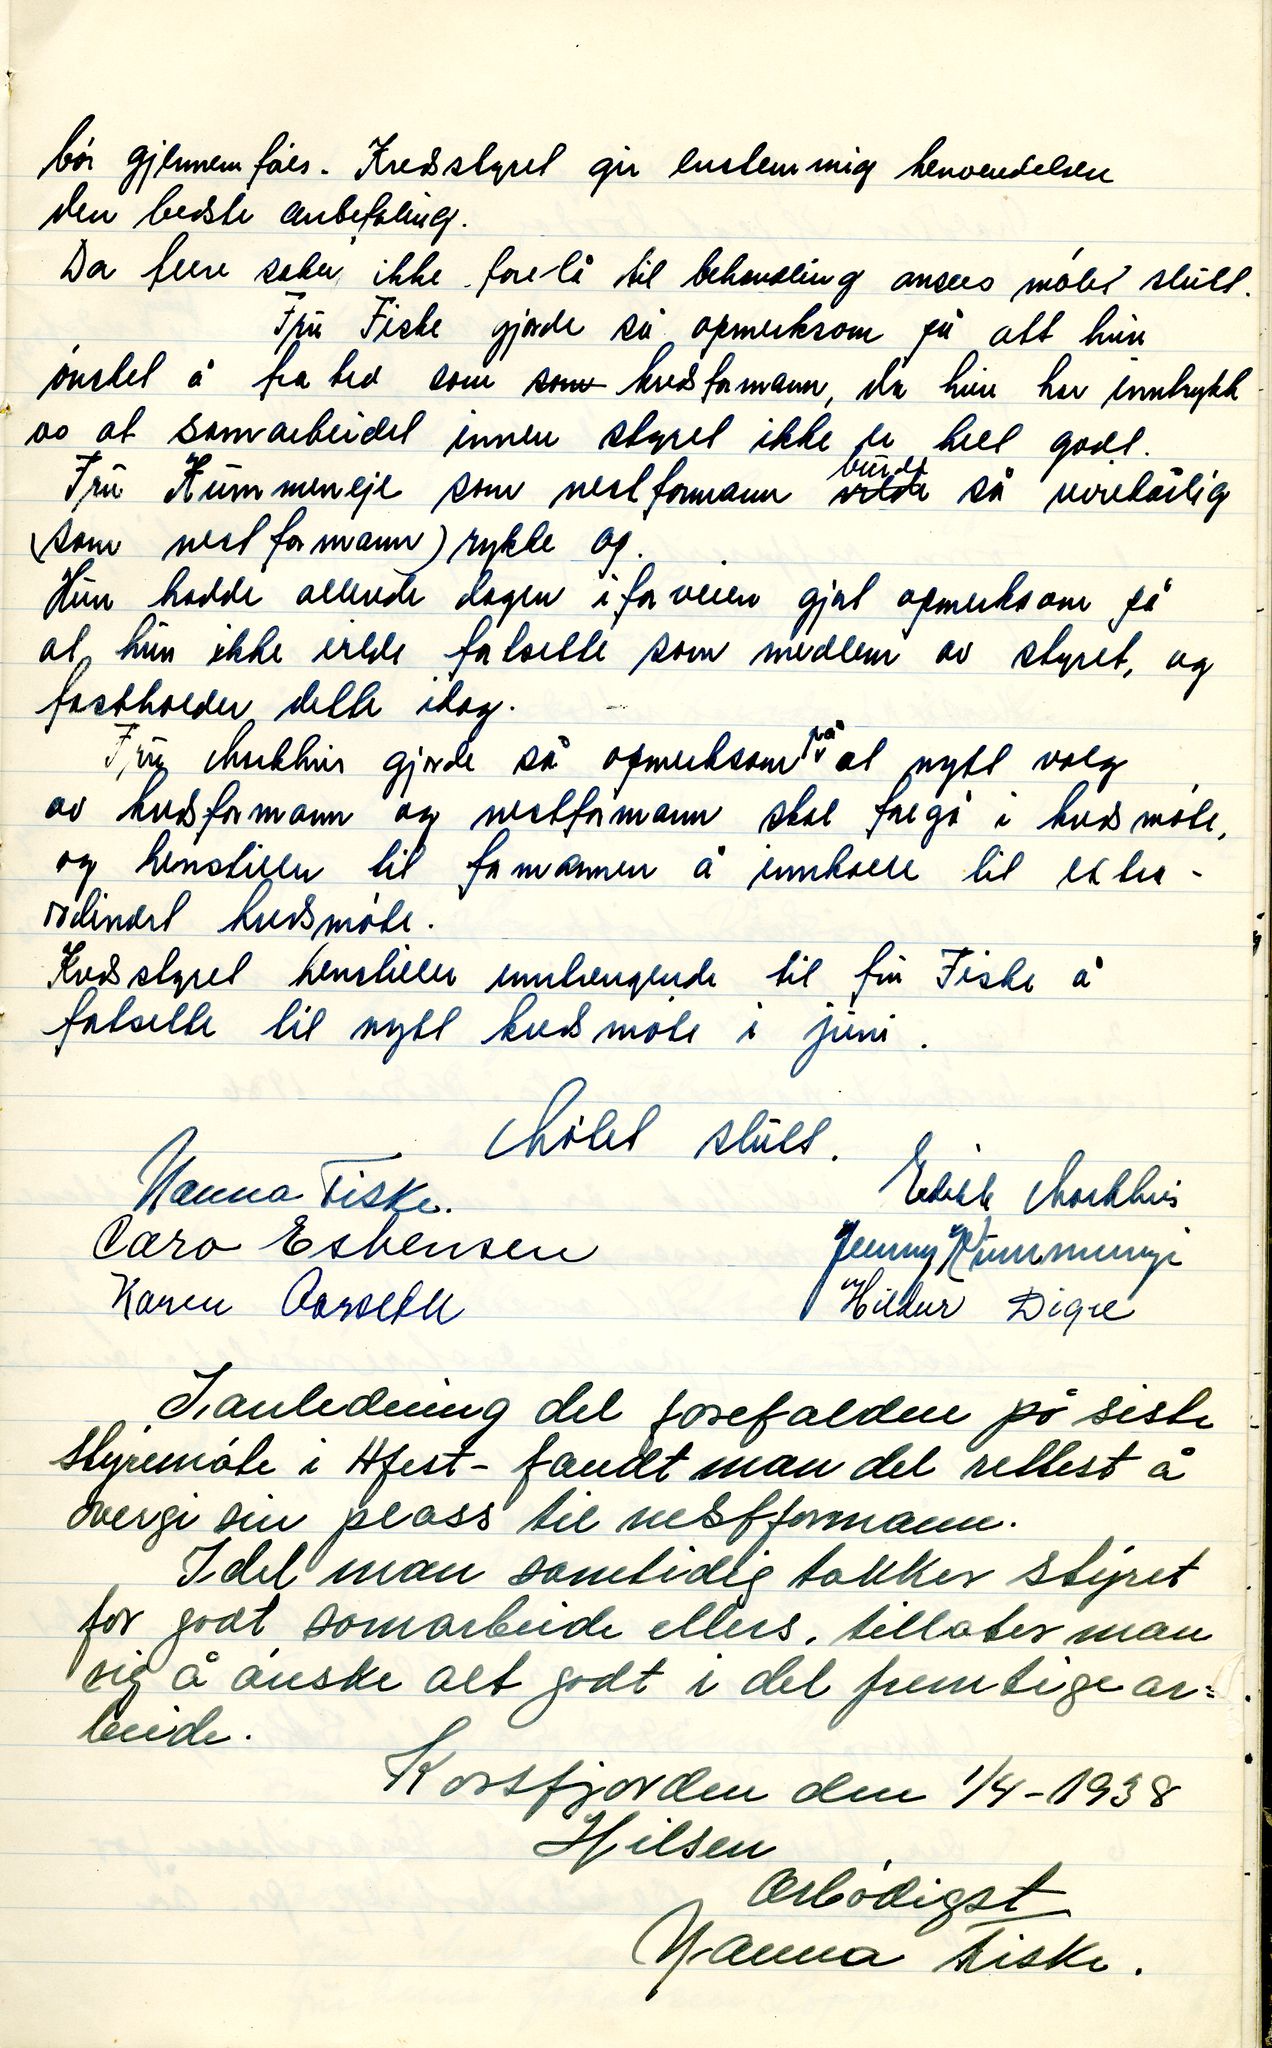 bör gjennemföies. Kredsstyret gir enstemmig henvendelsen
den bedste anbefaling.
Da flere saker ikke forelå til behandling ansees mötet slutt.
Fru Fiske gjorde så opmerksom på att hun
önsket å fra tred som som kredsformann, da hun har inntrykk
av at samarbeidet innen styret ikke er helt godt.
Fru Kummeneje som nestformann vilde burde så
(som nestformann) rykke op.
Hun hadde allerede dagen i forveien gjort opmerksom på
at hun ikke vilde fortsette som medlem av styret, og
fastholder dette idag.
Fru Markhus gjorde så opmerksom på at nytt valg
av kredsformann og nestformann skal foregå i kredsmöte,
og henstiller til formannen å innkalle til extra-
ordinært kredsmöte.
Kredsstyret henstiller inntrengende til fru Fiske å
fortsette til nytt kredsmöte i juni.
Mötet slutt.
Nanna Fiske. Edith Markhus
Caro Esbensen Jenny Kummeneje
Karen Aarseth Hildur Digre
I anledning det forefaldne på siste
styremöte i Hfest- fandt man det rettest å
overgi sin plass til nestformann.
Idet man samtidig takker styret
for godt samarbeide ellers, tillater man
sig å önske alt godt i det fremtige ar=
beide.
Korsfjorden den 1/4-1938
Hilsen
Ærbödigst
Nanna Fiske.